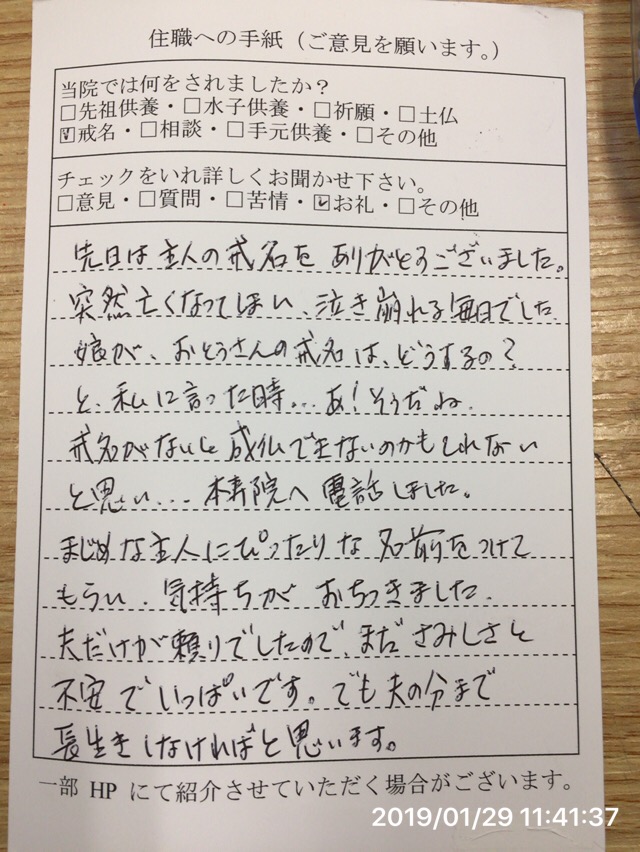 住職への手紙（ご意見を願います。）
当院では何をされましたか？
□先祖供養・□水子供養・□祈願・□土仏
☑戒名・□相談・□手元供養・□その他
チェックをいれ詳しくお聞かせ下さい。
□意見・□質問・□苦情・☑お礼・□その他
先日は主人の戒名を ありがとうございました。
突然亡くなってしまい、泣き崩れる毎日でした
娘が、おとうさんの戒名は、どうするの？
と、私に言った時... あ！そうだね.
戒名がないと成仏できないのかもしれない
と思い... 本寿院へ電話しました。
まじめな主人にぴったりな名前をつけて
もらい、気持ちがおちつきました.
夫だけが頼りでしたので、まださみしさと
不安でいっぱいです。でも夫の分まで
長生きしなければと思います。
一部 HP にて紹介させていただく場合がございます。
2019/01/29 11:41:37